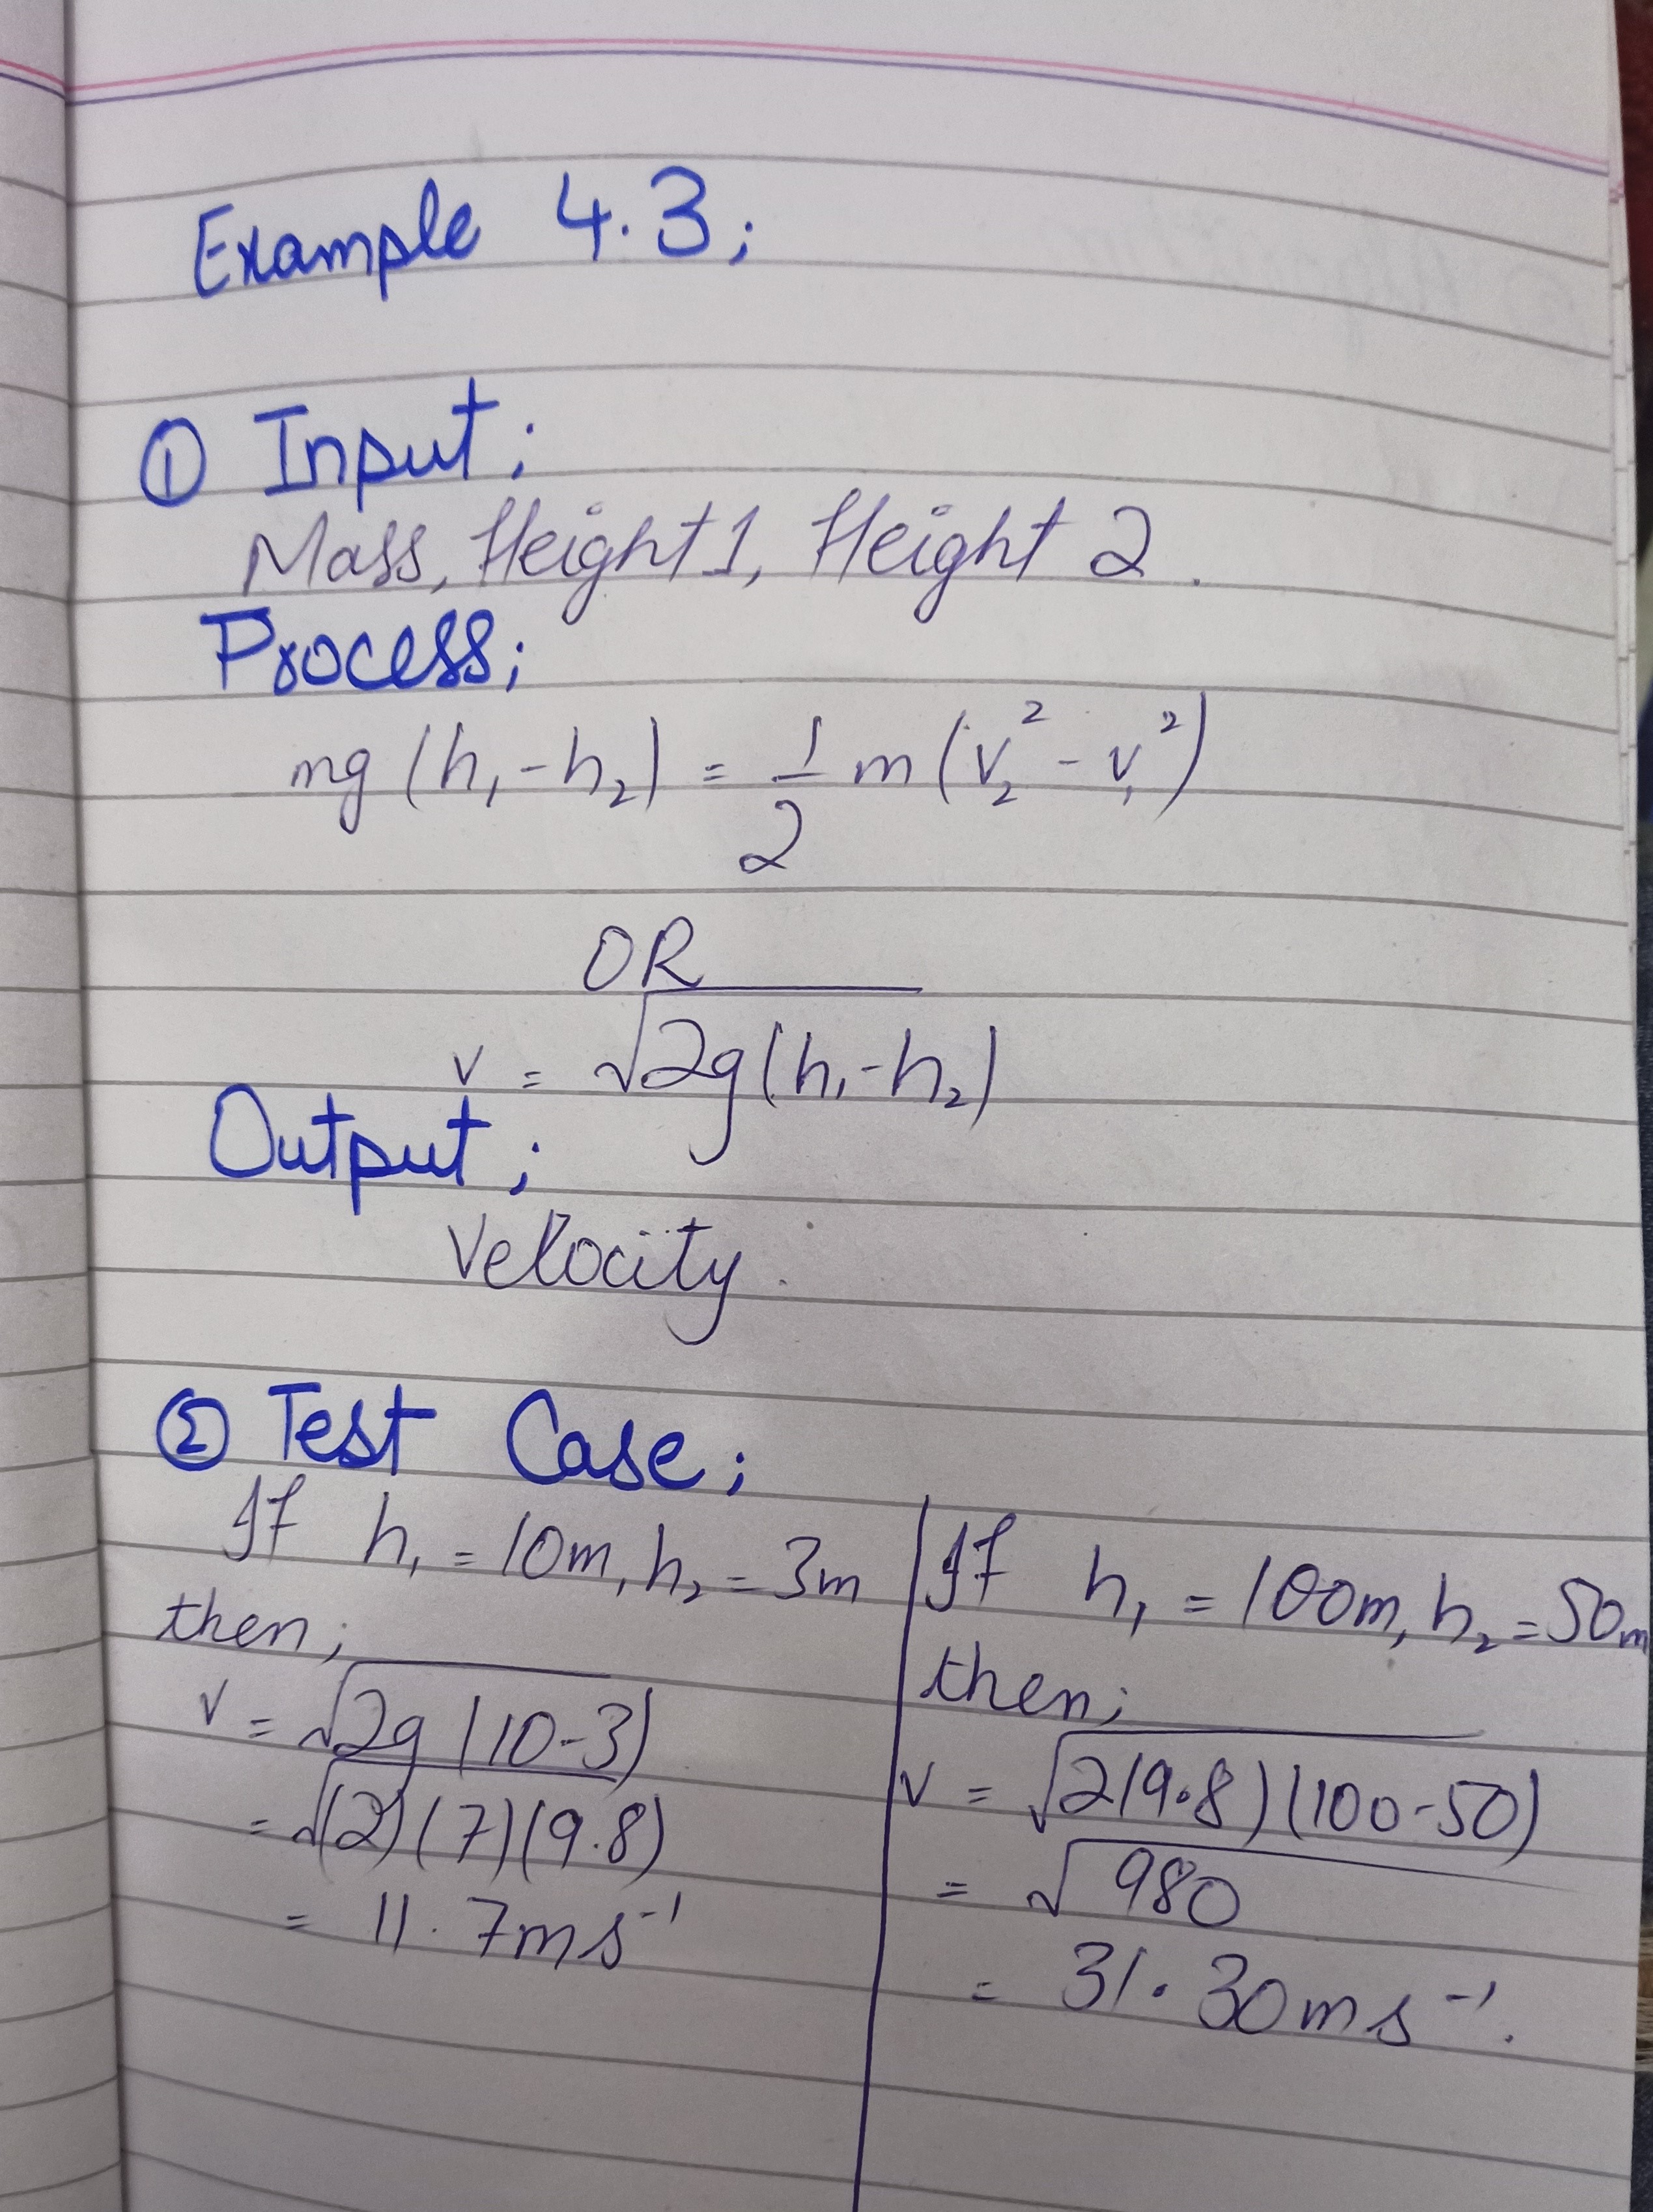 Example 4.3;
① Input;
Mass, Height 1, Height 2.
Process;
mg (h₁-h₂) = 1/2 m (v₂² - v₁²)
OR
v = √2g(h₁-h₂)
Output;
Velocity.
② Test Case;
If h₁ = 10m, h₂ = 3m
then;
v = √2g(10-3)
= √(2)(7)(9.8)
= 11.7ms⁻¹
If h₁ = 100m, h₂ = 50m
then;
v = √2(9.8)(100-50)
= √980
= 31.30ms⁻¹.